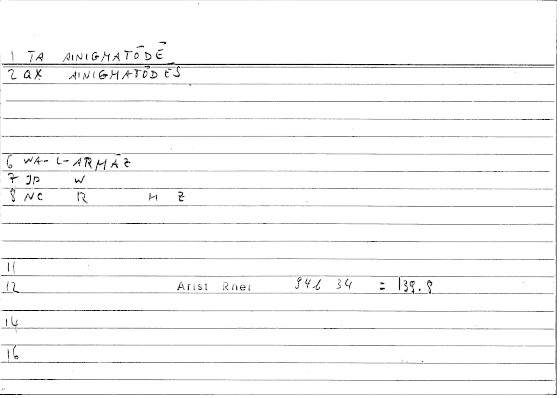 1 TA AINIGMATŌDĒ
2 QX AINIGMATŌDĒS
6 WA-L-ARMĀZ
7 JP W
8 NC R M Z
11
12 Arist Rhet 946 34 = 139.9
14
16